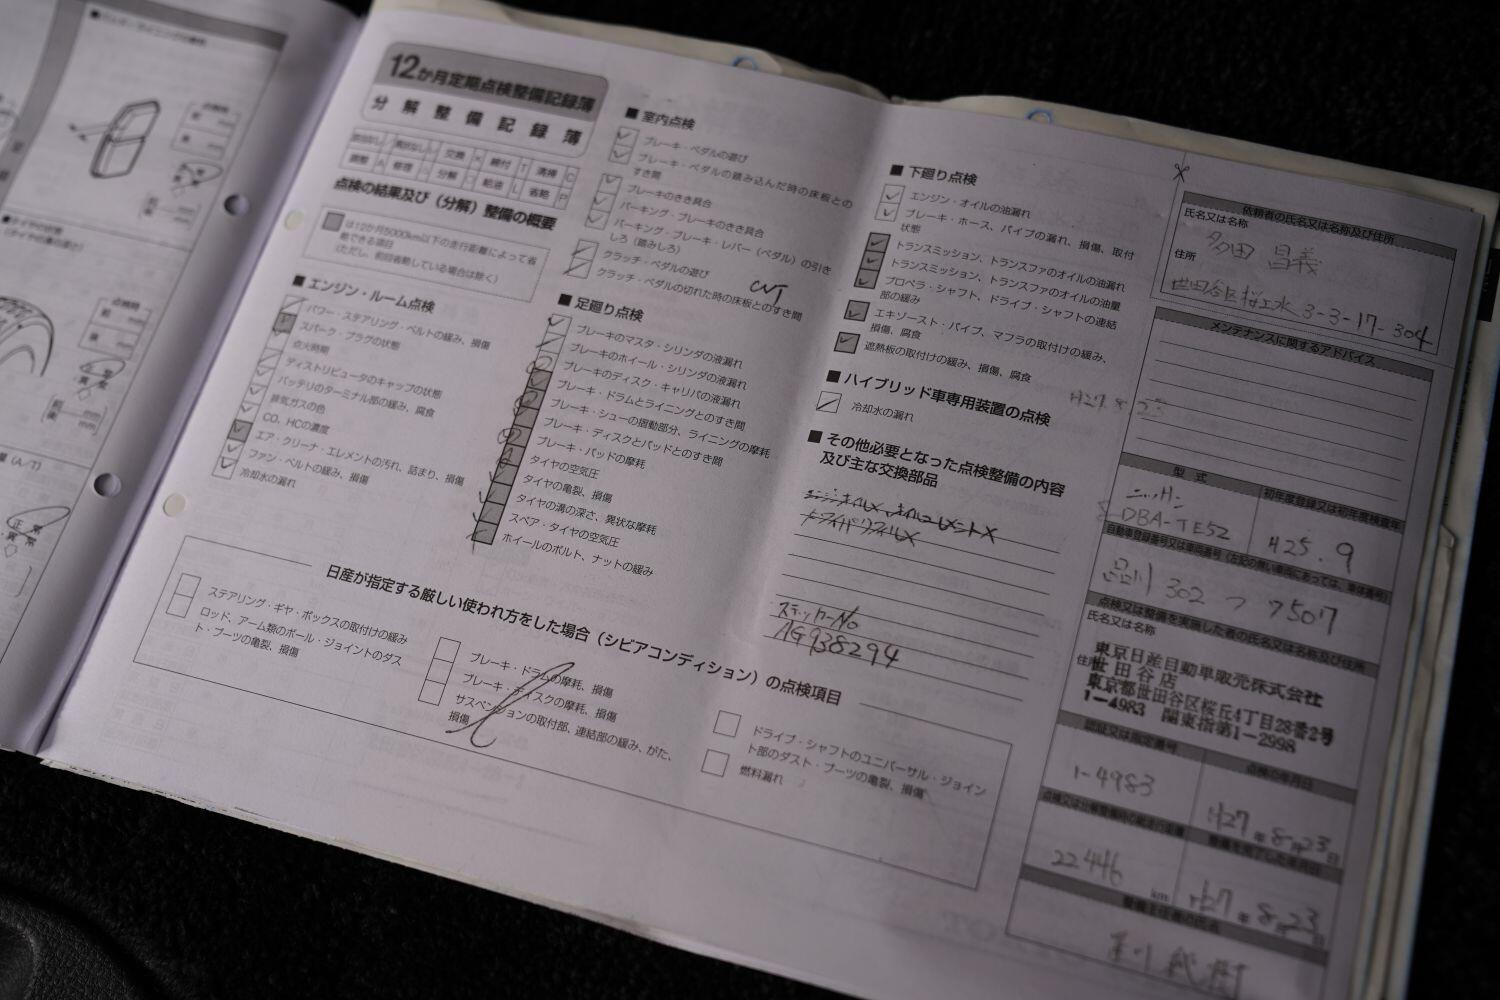 12か月定期点検整備記録簿
分解整備記録簿
交換
締付 T
清掃 C
調整 A
修理
分解
給油 L
省略 P
点検の結果及び（分解）整備の概要
は12か月5000km以下の走行距離によって省
略できる項目
（ただし、前回省略している場合は除く）
■ エンジン・ルーム点検
パワー・ステアリング・ベルトの緩み、損傷
スパーク・プラグの状態
点火時期
ディストリビュータのキャップの状態
バッテリのターミナル部の緩み、腐食
排気ガスの色
CO、HCの濃度
エア・クリーナ・エレメントの汚れ、詰まり、損傷
ファン・ベルトの緩み、損傷
冷却水の漏れ
■ 室内点検
ブレーキ・ペダルの遊び
ブレーキ・ペダルの踏み込んだ時の床板との
すき間
ブレーキのきき具合
パーキング・ブレーキのきき具合
パーキング・ブレーキ・レバー（ペダル）の引き
しろ（踏みしろ）
クラッチ・ペダルの遊び
クラッチ・ペダルの切れた時の床板とのすき間
CVT
■ 足廻り点検
ブレーキのマスタ・シリンダの液漏れ
ブレーキのホイール・シリンダの液漏れ
ブレーキのディスク・キャリパの液漏れ
ブレーキ・ドラムとライニングとのすき間
ブレーキ・シューの摺動部分、ライニングの摩耗
ブレーキ・ディスクとパッドとのすき間
ブレーキ・パッドの摩耗
タイヤの空気圧
タイヤの亀裂、損傷
タイヤの溝の深さ、異状な摩耗
スペア・タイヤの空気圧
ホイールのボルト、ナットの緩み
■ 下廻り点検
エンジン・オイルの油漏れ
ブレーキ・ホース、パイプの漏れ、損傷、取付
状態
トランスミッション、トランスファのオイルの油漏れ
トランスミッション、トランスファのオイルの油量
プロペラ・シャフト、ドライブ・シャフトの連結
部の緩み
エキゾースト・パイプ、マフラの取付けの緩み、
損傷、腐食
遮熱板の取付けの緩み、損傷、腐食
■ ハイブリッド車専用装置の点検
冷却水の漏れ
■ その他必要となった点検整備の内容
及び主な交換部品
ステッカーNo
AG938294
日産が指定する厳しい使われ方をした場合（シビアコンディション）の点検項目
ステアリング・ギヤ・ボックスの取付けの緩み
ロッド、アーム類のボール・ジョイントのダス
ト・ブーツの亀裂、損傷
ブレーキ・ドラムの摩耗、損傷
ブレーキ・ディスクの摩耗、損傷
サスペンションの取付部、連結部の緩み、がた、
損傷
ドライブ・シャフトのユニバーサル・ジョイン
ト部のダスト・ブーツの亀裂、損傷
燃料漏れ
依頼者の氏名又は名称及び住所
氏名又は名称
多田 昌義
住所
世田谷区桜上水 3-3-17-304
メンテナンスに関するアドバイス
型 式
初年度登録又は初年度検査年
ニッサン
DBA-TE52
H25.9
品川 302 つ 7507
点検又は整備を実施した者の氏名又は名称及び住所
氏名又は名称
東京日産自動車販売株式会社
世田谷店
住所
東京都世田谷区桜丘4丁目28番2号
1-4983 関東指第1-2998
認証又は指定番号
点検の年月日
1-4983
H27 年 8月 23 日
整備を完了した年月日
22446 km
H27 年 8月 23 日
整備主任者の氏名